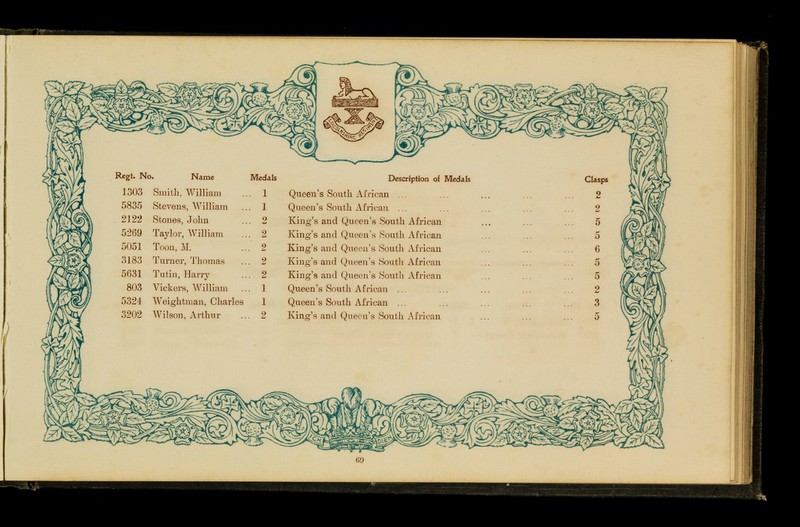 LINCOLNSHIRE REGIMENT
Regt. No. Name Medals Description of Medals Clasps
1303 Smith, William ... 1 Queen's South African ... ... ... ... ... 2
5835 Stevens, William ... 1 Queen's South African ... ... ... ... ... 2
2122 Stones, John ... 2 King's and Queen's South African ... ... ... 5
5269 Taylor, William ... 2 King's and Queen's South African ... ... ... 5
5051 Toon, M. ... 2 King's and Queen's South African ... ... ... 6
3183 Turner, Thomas ... 2 King's and Queen's South African ... ... ... 5
5631 Tutin, Harry ... 2 King's and Queen's South African ... ... ... 5
803 Vickers, William ... 1 Queen's South African ... ... ... ... ... 2
5324 Weightman, Charles 1 Queen's South African ... ... ... ... ... 3
3202 Wilson, Arthur ... 2 King's and Queen's South African ... ... ... 5
ICH DIEN
69